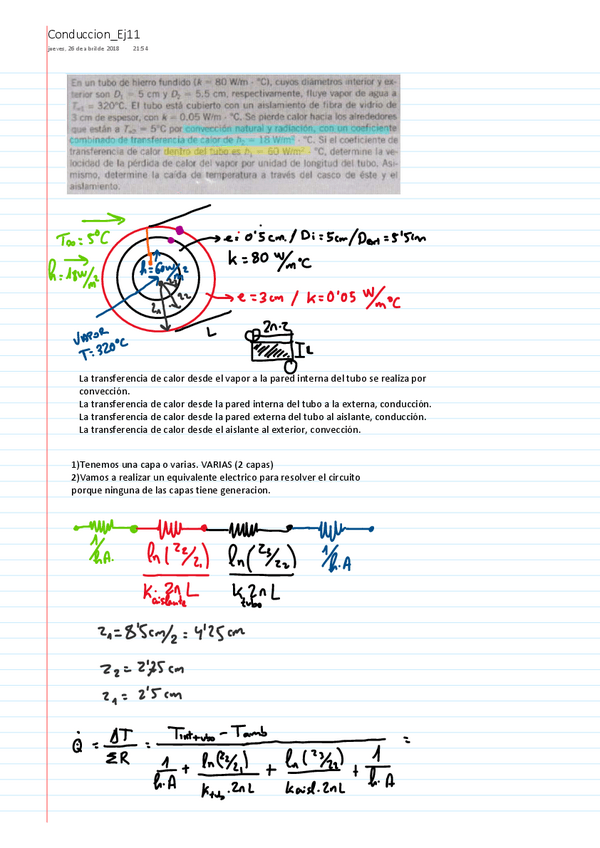 Conduccion_Ej11
jueves, 26 de abril de 2018 21:54
En un tubo de hierro fundido (k = 80 W/m · °C), cuyos diámetros interior y ex-
terior son D₁ = 5 cm y D₂ = 5.5 cm, respectivamente, fluye vapor de agua a
T∞1 = 320°C. El tubo está cubierto con un aislamiento de fibra de vidrio de
3 cm de espesor, con k = 0.05 W/m · °C. Se pierde calor hacia los alrededores
que están a T∞2 = 5°C por convección natural y radiación, con un coeficiente
combinado de transferencia de calor de h₂ = 18 W/m² · °C. Si el coeficiente de
transferencia de calor dentro del tubo es h₁ = 60 W/m² · °C, determine la ve-
locidad de la pérdida de calor del vapor por unidad de longitud del tubo. Asi-
mismo, determine la caída de temperatura a través del casco de éste y el
aislamiento.
T∞ = 5°C
h = 18 W/m²
h = 60 W/m²
e: 0'5cm / Di = 5cm / Dext = 5'5cm
k = 80 W/m°C
e = 3cm / k = 0'05 W/m°C
VAPOR
T: 320°C
r₁
r₂
L
2π·r
L
La transferencia de calor desde el vapor a la pared interna del tubo se realiza por
convección.
La transferencia de calor desde la pared interna del tubo a la externa, conducción.
La transferencia de calor desde la pared externa del tubo al aislante, conducción.
La transferencia de calor desde el aislante al exterior, convección.
1)Tenemos una capa o varias. VARIAS (2 capas)
2)Vamos a realizar un equivalente electrico para resolver el circuito
porque ninguna de las capas tiene generacion.
1/h.A. ln(r₂/r₁)/k aislante·2πL ln(r₃/r₂)/k tubo 2πL 1/h·A
r₁ = 8'5cm/2 = 4'25cm
r₂ = 2'75cm
r₁ = 2'5cm
Q̇ = ΔT/ΣR = (Tint tubo − Tamb)/(1/h·A + ln(r₂/r₁)/k tub·2πL + ln(r₃/r₂)/k aisl·2πL + 1/h·A) =